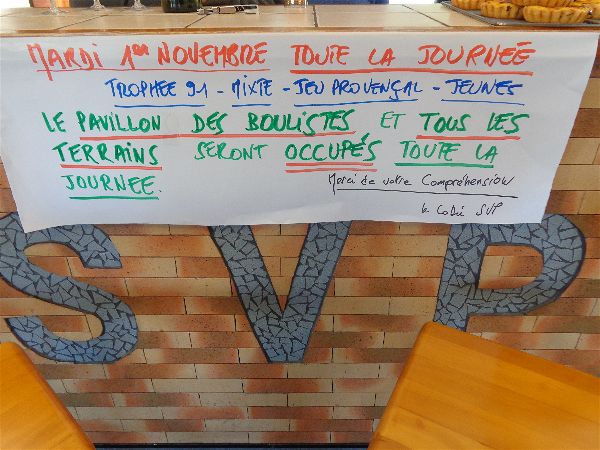 MARDI 1er NOVEMBRE TOUTE LA JOURNEÉ
TROPHEE 91 - MIXTE - JEU PROVENÇAL - JEUNES
LE PAVILLON DES BOULISTES ET TOUS LES
TERRAINS SERONT OCCUPÉS TOUTE LA
JOURNEE.
Merci de votre Compréhension
le CoDir SVP
SVP